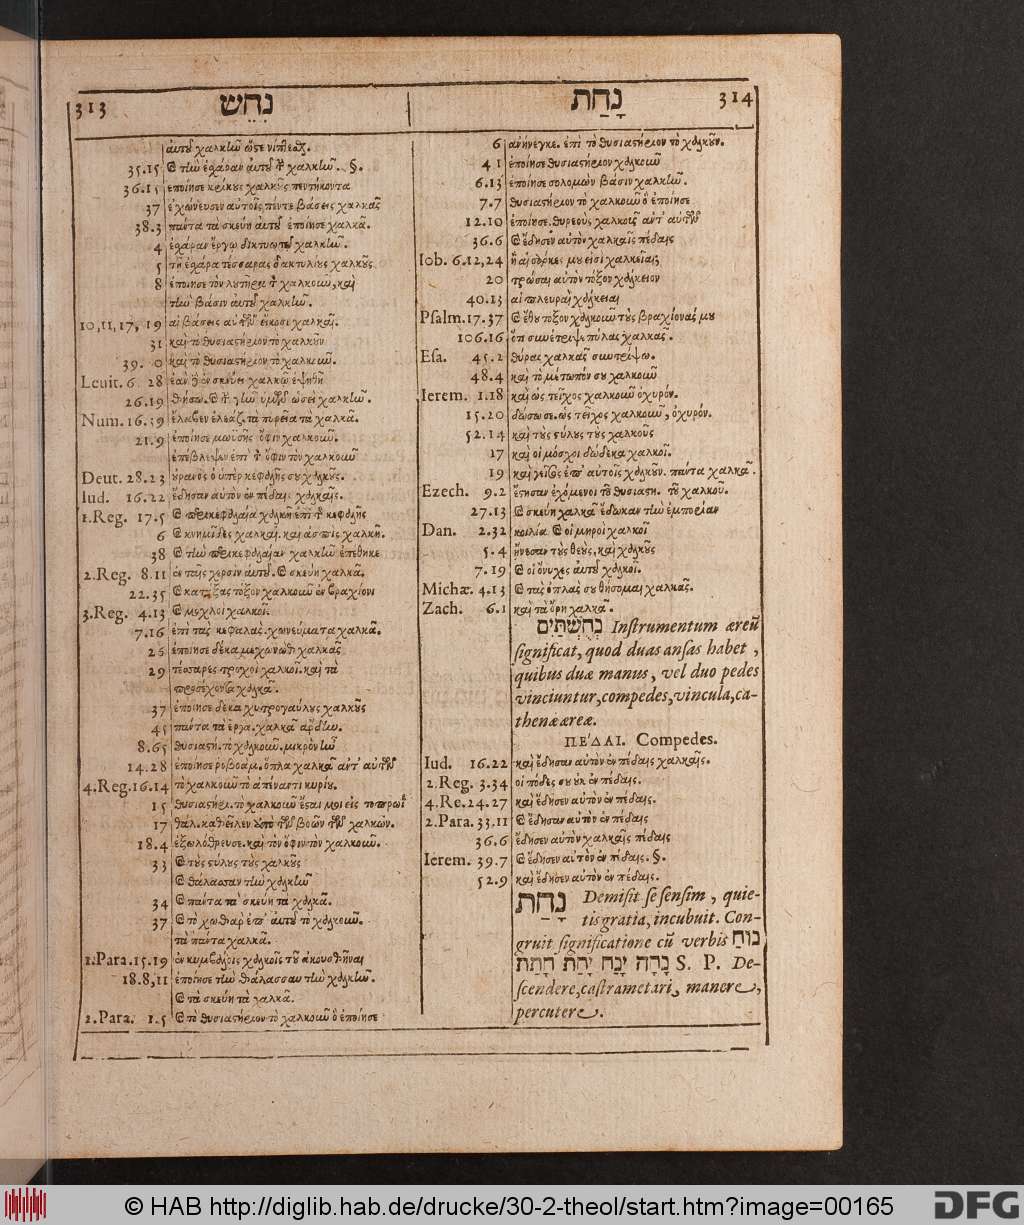 313 נחש
αὐτοῦ χαλκῆν ὥστε νίπτεσθ.
35.15 Ϗ τὴν ἐσχάραν αὐτοῦ τ χαλκῆν. §.
36.15 ἐποίησε κρίκους χαλκοῦς πεντήκοντα
37 ἐχώνευσεν αὐτοῖς πέντε βάσεις χαλκᾶς
38.3 πάντα τὰ σκεύη αὐτοῦ ἐποίησε χαλκᾶ.
4 ἐσχάραν ἔργῳ δικτυωτῷ χαλκῆν.
5 τῇ ἐσχάρᾳ τέσσαρας δακτυλίους χαλκοῦς
8 ἐποίησε τὸν λυτῆρα τ χαλκοῦν, καὶ
τὴν βάσιν αὐτοῦ χαλκῆν.
10, 11, 17, 19 αἱ βάσεις αὐτῶν εἴκοσι χαλκαῖ.
31 καὶ τὸ θυσιαστήριον τὸ χαλκοῦν
39. 0 καὶ τὸ θυσιαστήριον τὸ χαλκοῦν.
Leuit. 6 28 ἐὰν ἐν σκεύει χαλκῷ ἑψηθῇ
26.19 θήσω. Ϗ τ γῆν ὑμῶν ὡσεὶ χαλκῆν.
Num. 16.39 ἔλαβεν ἐλεάζ. τὰ πυρεῖα τὰ χαλκᾶ.
21.9 ἐποίησε μωϋσῆς ὄφιν χαλκοῦν.
ἐπέβλεψεν ἐπὶ τ ὄφιν τὸν χαλκοῦν
Deut. 28.23 οὐρανὸς ὁ ὑπὲρ κεφαλῆς σου χαλκοῦς.
Iud. 16.22 ἔδησαν αὐτὸν ἐν πέδαις χαλκαῖς.
1.Reg. 17.5 Ϗ περικεφαλαία χαλκῆ ἐπὶ τ κεφαλῆς
6 Ϗ κνημῖδες χαλκαῖ. καὶ ἀσπὶς χαλκῆ.
38 Ϗ τὴν περικεφαλαίαν χαλκῆν ἐπέθηκε
2.Reg. 8.11 ἐν ταῖς χερσὶν αὐτοῦ. Ϗ σκεύη χαλκᾶ.
22.35 Ϗ κατάξας τόξον χαλκοῦν ἐν βραχίονι
3.Reg. 4.13 Ϗ μοχλοὶ χαλκοῖ.
7.16 ἐπὶ τὰς κεφαλὰς. χωνεύματα χαλκᾶ.
26 ἐποίησε δέκα μεχωνὼθ χαλκᾶς
29 τέσσαρες τροχοὶ χαλκοῖ. καὶ τὰ
προσέχοντα χαλκᾶ.
37 ἐποίησε δέκα χυτρογαύλους χαλκοῦς
45 πάντα τὰ ἔργα. χαλκᾶ ἄρδην.
8.65 θυσιαστή. τὸ χαλκοῦν. μικρὸν ἦν
14.28 ἐποίησε ῥοβοάμ. ὅπλα χαλκᾶ ἀντ' αὐτῶν
4.Reg. 16.14 τὸ χαλκοῦν τὸ ἀπέναντι κυρίου.
15 θυσιαστήρι. τὸ χαλκοῦν ἔσται μοι εἰς τοπρωῒ
17 θάλ. καθεῖλεν ἀπὸ τῶν βοῶν τῶν χαλκῶν.
18.4 ἐξωλόθρευσε. καὶ τὸν ὄφιν τὸν χαλκοῦν.
33 Ϗ τοὺς στύλους τοὺς χαλκοῦς
Ϗ θάλασσαν τὴν χαλκῆν
34 Ϗ πάντα τὰ σκεύη τὰ χαλκᾶ.
37 Ϗ τὸ χωθὰρ ἐπ' αὐτοῦ τὸ χαλκοῦν.
τὰ πάντα χαλκᾶ.
1.Para. 15.19 ἐν κυμβάλοις χαλκοῖς τοῦ ἀκουσθῆναι
18.8, 11 ἐποίησε τὴν θάλασσαν τὴν χαλκῆν.
Ϗ τὰ σκεύη τὰ χαλκᾶ.
2.Para. 1.5 Ϗ τὸ θυσιαστήριον τὸ χαλκοῦν ὃ ἐποίησε
נָחַת 314
6 ἀνήνεγκε. ἐπὶ τὸ θυσιαστήριον τὸ χαλκοῦν.
4 1 ἐποίησε θυσιαστήριον χαλκοῦν
6.13 ἐποίησε σολομὼν βάσιν χαλκῆν.
7.7 θυσιαστήριον τὸ χαλκοῦν ὃ ἐποίησε
12.10 ἐποίησε. θυρεοὺς χαλκοῦς ἀντ' αὐτῶν
36.6 Ϗ ἔδησεν αὐτὸν χαλκαῖς πέδαις
Iob. 6.12, 24 ἢ αἱ σάρκες μου εἰσὶ χάλκειαι;
20 τρώσαι αὐτὸν τόξον χάλκειον
40.13 αἱ πλευραὶ χάλκειαι
Psalm. 17.37 Ϗ ἔθου τόξον χαλκοῦν τοὺς βραχίονάς μου
106.16 ὅτι συνέτριψε πύλας χαλκᾶς.
Esa. 45.2 θύρας χαλκᾶς συντρίψω.
48.4 καὶ τὸ μέτωπόν σου χαλκοῦν
Ierem. 1.18 καὶ ὡς τεῖχος χαλκοῦν ὀχυρόν.
15.20 δώσω σε. ὡς τεῖχος χαλκοῦν, ὀχυρόν.
52.14 καὶ τοὺς στύλους τοὺς χαλκοῦς
17 καὶ οἱ μόσχοι δώδεκα χαλκοῖ.
19 καὶ γεῖσος ἐπ' αὐτοῖς χαλκοῦν. πάντα χαλκᾶ.
Ezech. 9.2 ἔστησαν ἐχόμενοι τοῦ θυσιαστη. τοῦ χαλκοῦ.
27.13 Ϗ σκεύη χαλκᾶ ἔδωκαν τὴν ἐμπορίαν
Dan. 2.32 κοιλία Ϗ οἱ μηροὶ χαλκοῖ
5.4 ᾔνεσαν τοὺς θεοὺς. καὶ χαλκοῦς
7.19 Ϗ οἱ ὄνυχες αὐτοῦ χαλκοῖ.
Michæ. 4.13 Ϗ τὰς ὁπλάς σου θήσομαι χαλκᾶς.
Zach. 6.1 καὶ τὰ ὄρη χαλκᾶ.
נְחֻשְׁתַּיִם Instrumentum æreũ
significat, quod duas ansas habet,
quibus duæ manus, vel duo pedes
vinciuntur, compedes, vincula, ca-
thenæ æreæ.
ΠΕ΄ΔΑΙ. Compedes.
Iud. 16.22 καὶ ἔδησαν αὐτὸν ἐν πέδαις χαλκαῖς.
2.Reg. 3.34 οἱ πόδες σου οὐκ ἐν πέδαις.
4.Re. 24.27 καὶ ἔδησεν αὐτὸν ἐν πέδαις.
2.Para. 33.11 Ϗ ἔδησαν αὐτὸν ἐν πέδαις
36.6 ἔδησεν αὐτὸν χαλκαῖς πέδαις
Ierem. 39.7 Ϗ ἔδησεν αὐτὸν ἐν πέδαις. §.
52.9 καὶ ἔδησεν αὐτὸν ἐν πέδαις.
נָחַת Demisit se sensim, quie-
tis gratia, incubuit. Con-
gruit significatione cũ verbis נוּחַ
נָחָה יָנַח יָחַת חָתַת S. P. De-
scendere, castrametari, manere,
percutere.
© HAB http://diglib.hab.de/drucke/30-2-theol/start.htm?image=00165
DFG